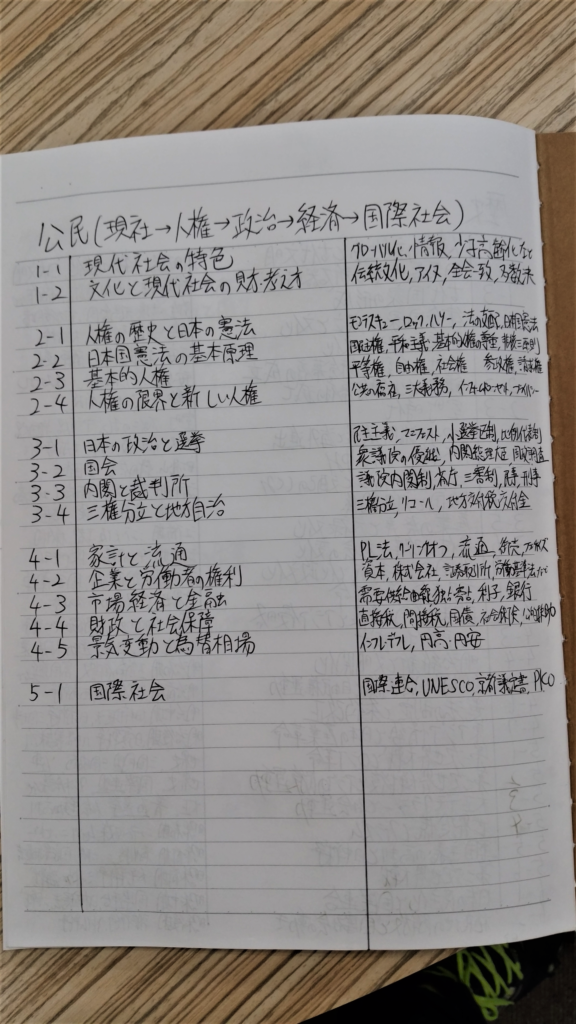 公民(現社→人権→政治→経済→国際社会)
1-1 現代社会の特色 グローバル化, 情報, 少子高齢化など
1-2 文化と現代社会の見方・考え方 伝統文化, アイヌ, 全会一致, 多数決
2-1 人権の歴史と日本の憲法 モンテスキュー, ロック, ルソー, 法の支配, 日本国憲法
2-2 日本国憲法の基本原理 国民主権, 平和主義, 基本的人権の尊重, 非核三原則
2-3 基本的人権 平等権, 自由権, 社会権 参政権, 請求権
2-4 人権の限界と新しい人権 公共の福祉, 三大義務, インフォームドコンセント, プライバシー
3-1 日本の政治と選挙 民主主義, マニフェスト, 小選挙区制, 比例代表制
3-2 国会 衆議院の優越, 内閣総理大臣 国政調査
3-3 内閣と裁判所 議院内閣制, 省庁, 三審制, 民事, 刑事
3-4 三権分立と地方自治 三権分立, リコール, 地方交付税交付金
4-1 家計と流通 PL法, クーリングオフ, 流通, 卸売,
4-2 企業と労働者の権利 資本, 株式会社, 証券取引所, 労働基準法など
4-3 市場経済と金融 需要供給曲線, 独占禁止, 利子, 銀行
4-4 財政と社会保障 直接税, 間接税, 国債, 社会保障, 公的扶助
4-5 景気変動と為替相場 インフレデフレ, 円高・円安
5-1 国際社会 国際連合, UNESCO, 京都議定書, PKO